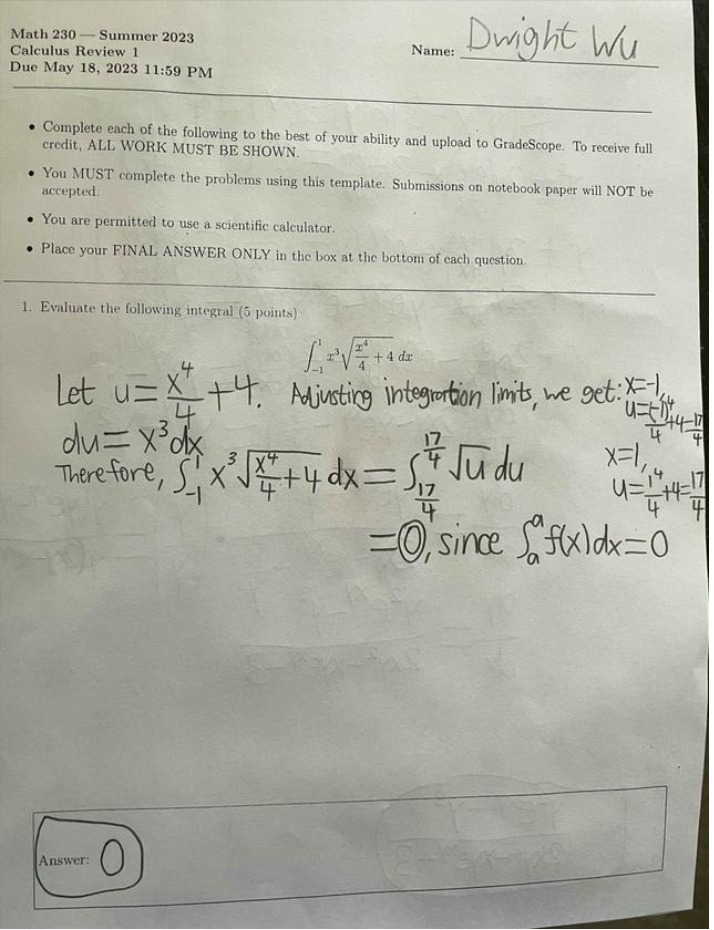 Math 230 — Summer 2023
Calculus Review 1
Due May 18, 2023 11:59 PM
Name: Dwight Wu
• Complete each of the following to the best of your ability and upload to GradeScope. To receive full
credit, ALL WORK MUST BE SHOWN.
• You MUST complete the problems using this template. Submissions on notebook paper will NOT be
accepted.
• You are permitted to use a scientific calculator.
• Place your FINAL ANSWER ONLY in the box at the bottom of each question.
1. Evaluate the following integral (5 points)
∫_{-1}^{1} x³√(x⁴/4 + 4) dx
Let u = x⁴/4 + 4. Adjusting integration limits, we get: x=-1,
u=(-1)⁴/4+4=17/4
du = x³dx
x=1,
u=1⁴/4+4=17/4
Therefore, ∫_{-1}^{1} x³√(x⁴/4+4) dx = ∫_{17/4}^{17/4} √u du
=0, since ∫_{a}^{a} f(x)dx=0
Answer: 0